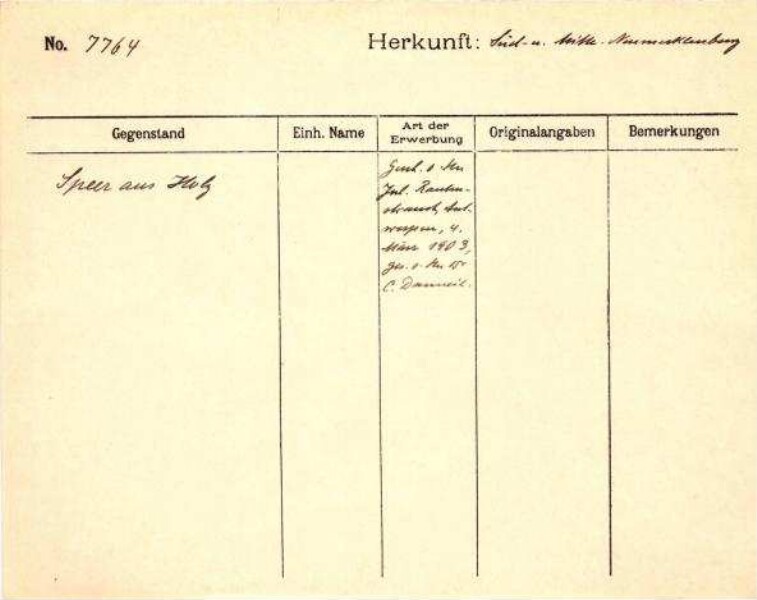 No. 7764
Herkunft: Süd- u. Mitte-Neumecklenburg
Gegenstand
Einh. Name
Art der
Erwerbung
Originalangaben
Bemerkungen
Speer aus Holz
Gesch. v. Hn
Jul. Rauten-
strauch, Ant-
werpen, 4.
März 1903,
ges. v. Hn Dr
C. Danneil.